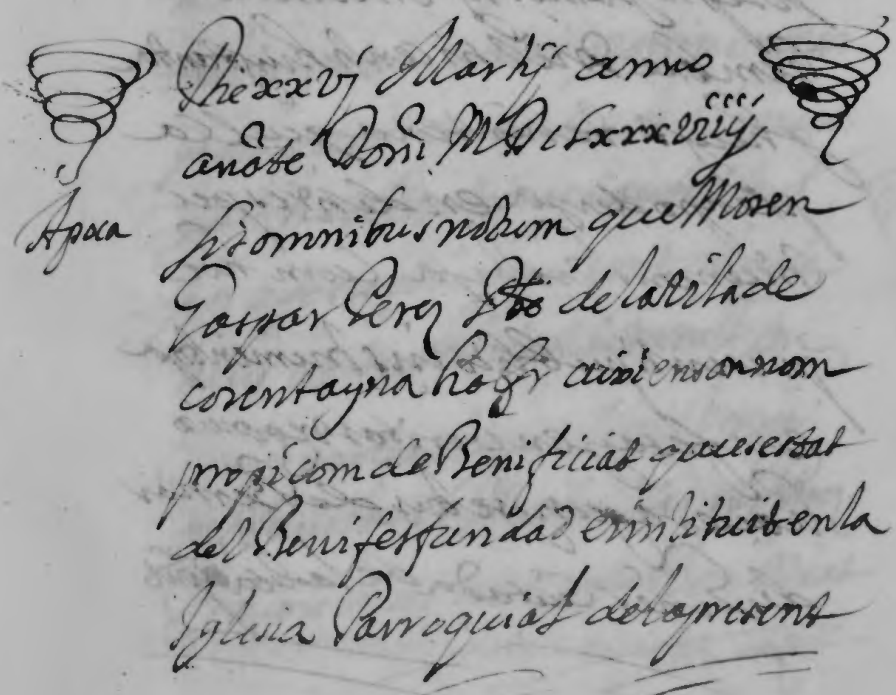 Die xxvj Martij anno
anāte Dom̄i MDLxxxviiij
Apoca
sit omnibus notum que Mosen
Gaspar Perez de la vila de
cocentayna hafr aixi en son nom
propi com de Benificiat que es estat
del Benifet fundad e instituit en la
Iglesia Parroquial de la present